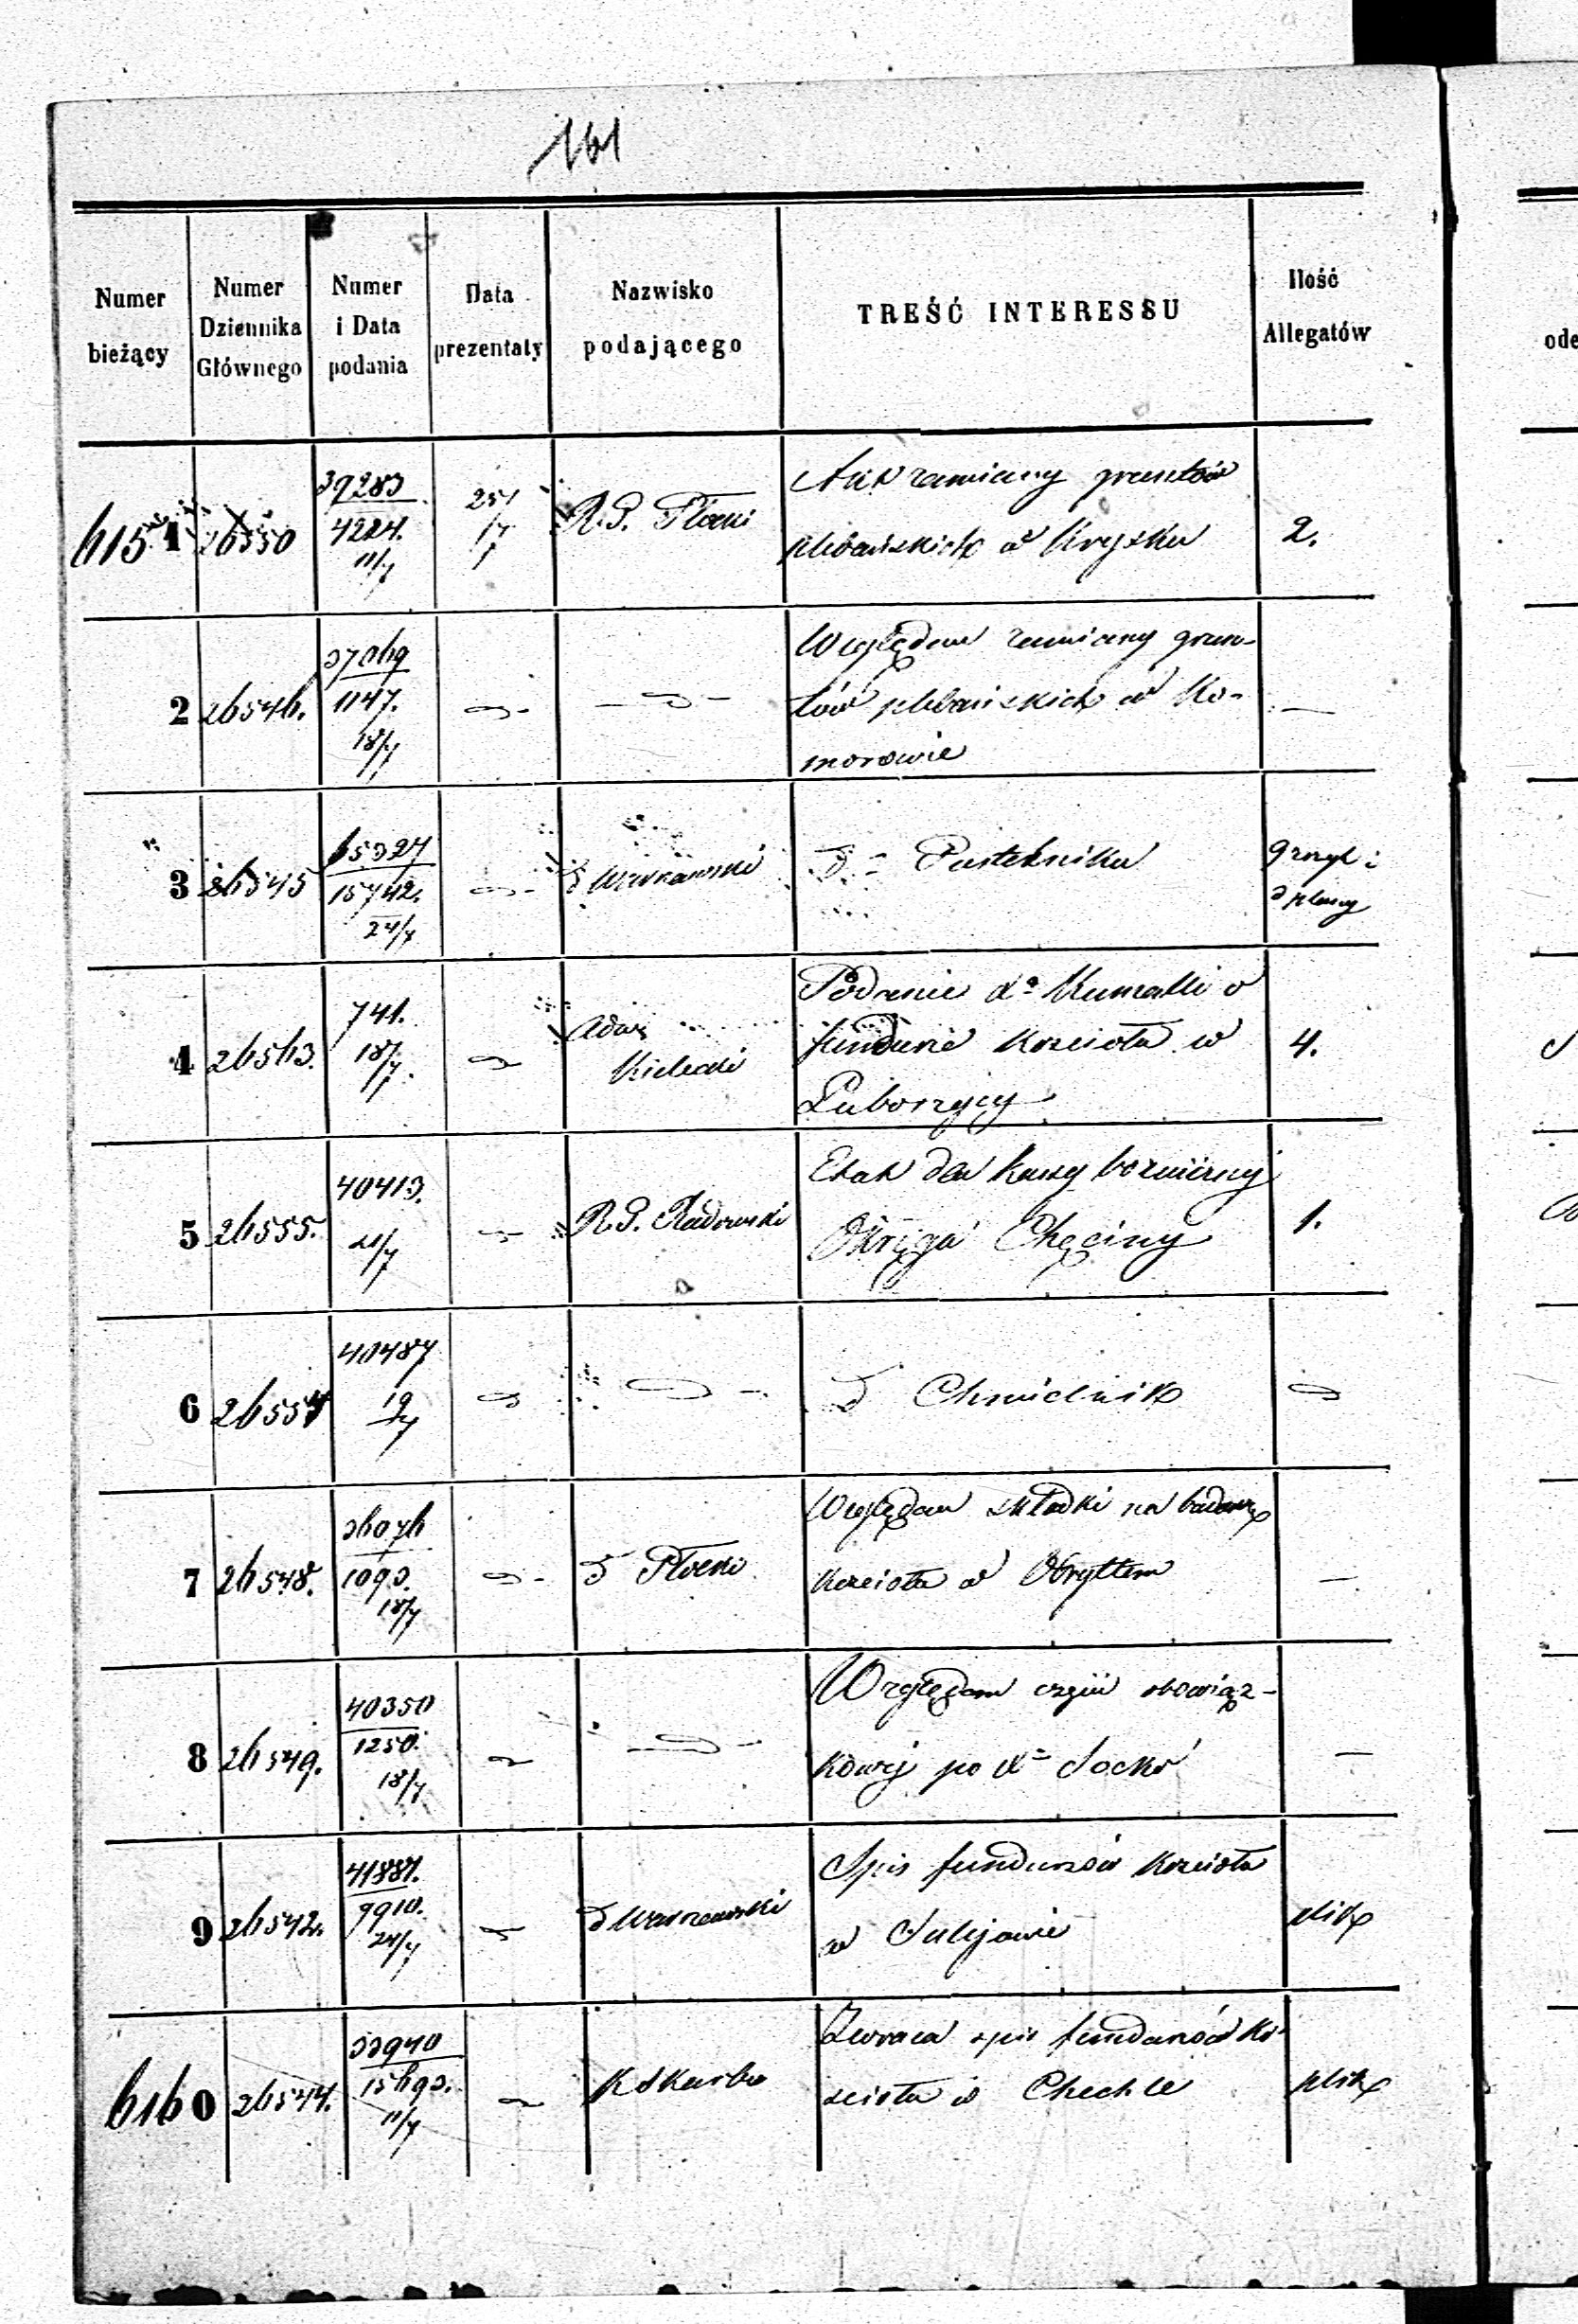 161
Numer bieżący
Numer Dziennika Głównego
Numer i Data podania
Data prezentaty
Nazwisko podającego
TREŚĆ INTERESSU
Ilość Allegatów
6151 26550
39283
4224.
11/7
25/7
R. G. Płocki
Akt zamiany gruntów
plebańskich w Krysku
2.
2 26546.
37069
1147.
18/7
Względem zamiany grun-
tów plebańskich w Ko-
morowie
—
3 26545
65327
15742.
24/7
d Warszawski
d - Pustelnika
4 26563.
741.
18/7.
Adm
Kielecki
Podanie Xa Kumalli o
fundusze kościoła w
Luborzycy
4.
5 26555.
40413.
21/7
R. G. Radomski
Etat dla Kassy bożniczej
Okręgu Chęciny
1.
6 26554
40487
19/7
d
d -
d Chmielnik
d
7 26548.
36076
1093.
18/7
d Płocki
Względem składki na budowę
kościoła w Obryttem
—
8 26549.
40350
1250.
18/7
Względem części obowiąz-
kowej po Xu Socko
—
9 26542.
41887.
9910.
24/7
d Warszawski
Spis funduszów kościoła
w Sulejowie
plik
6160 26544.
33940
15693.
11/7
K Skarbu
Zwraca spis funduszów ko-
ścioła w Chechle
plik